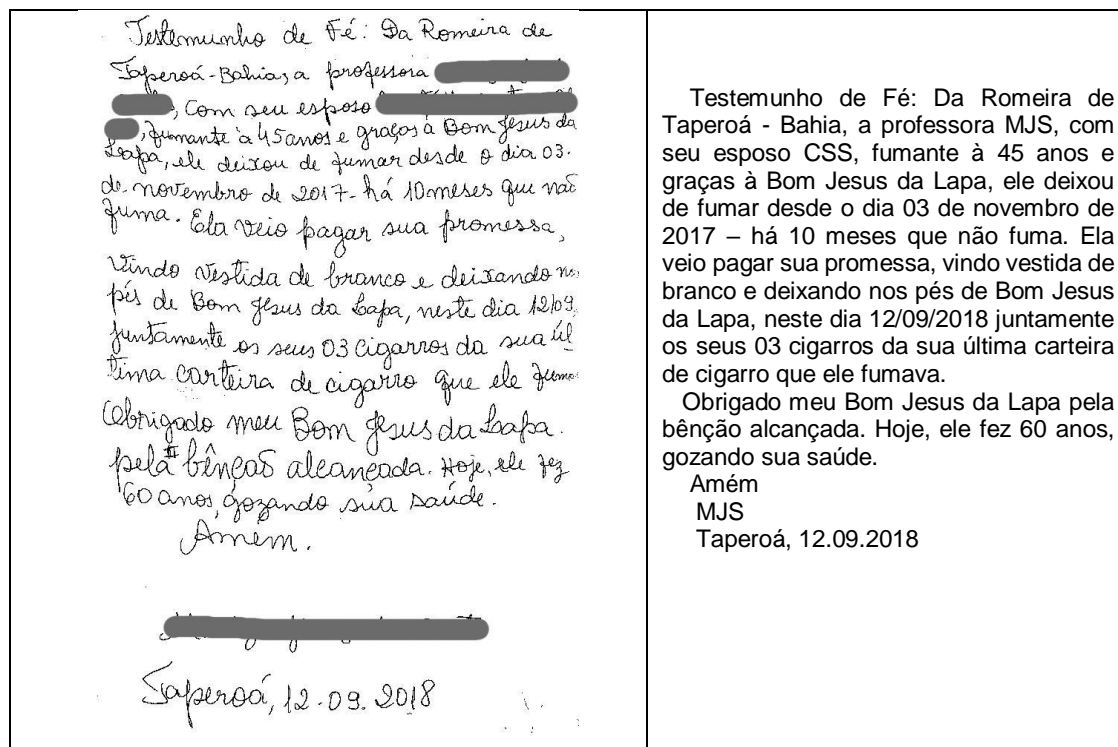 Testemunho de Fé: Da Romeira de
Taperoá-Bahia, a professora
, Com seu esposo
, fumante à 45 anos e graças à Bom Jesus da
Lapa, ele deixou de fumar desde o dia 03.
de novembro de 2017- há 10 meses que não
fuma. Ela veio pagar sua promessa,
Vindo vestida de branco e deixando
pés de Bom Jesus da Lapa, neste dia 12/09
juntamente os seus 03 cigarros da sua úl
tima carteira de cigarro que ele
Obrigado meu Bom Jesus da Lapa.
pela bênção alcançada. Hoje, ele fez
60 anos, gozando sua saúde.
Amém.
Taperoá, 12.09.2018
Testemunho de Fé: Da Romeira de
Taperoá - Bahia, a professora MJS, com
seu esposo CSS, fumante à 45 anos e
graças à Bom Jesus da Lapa, ele deixou
de fumar desde o dia 03 de novembro de
2017 – há 10 meses que não fuma. Ela
veio pagar sua promessa, vindo vestida de
branco e deixando nos pés de Bom Jesus
da Lapa, neste dia 12/09/2018 juntamente
os seus 03 cigarros da sua última carteira
de cigarro que ele fumava.
Obrigado meu Bom Jesus da Lapa pela
bênção alcançada. Hoje, ele fez 60 anos,
gozando sua saúde.
Amém
MJS
Taperoá, 12.09.2018